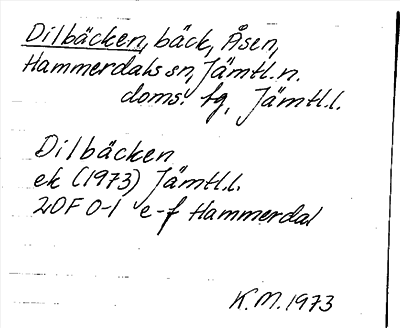 Dilbäcken, bäck, Åsen,
Hammerdals sn, Jämtl. n.
doms. tg, Jämtl. l.
Dilbäcken
ek (1973) Jämtl. l.
20F 0-1 e-f Hammerdal
K.M. 1973